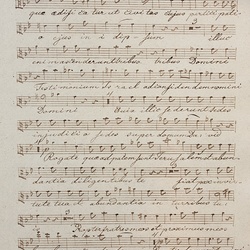 que aedificatur ut civitas cujus partici pati
o ejus in i dip sum illuc
enim ascenderunt tribus tribus Domini
Testimonium Israel ad confitendum nomini
Domini Quia illic sederunt sedes
in juditio sedes super domum David
Rogate quae ad pacem sunt Jerusalem et abun
dantia diligentibus te fiat pax in vir
tute tua et abundantia in turribus tuis
Propter fratres meos et proximos meos